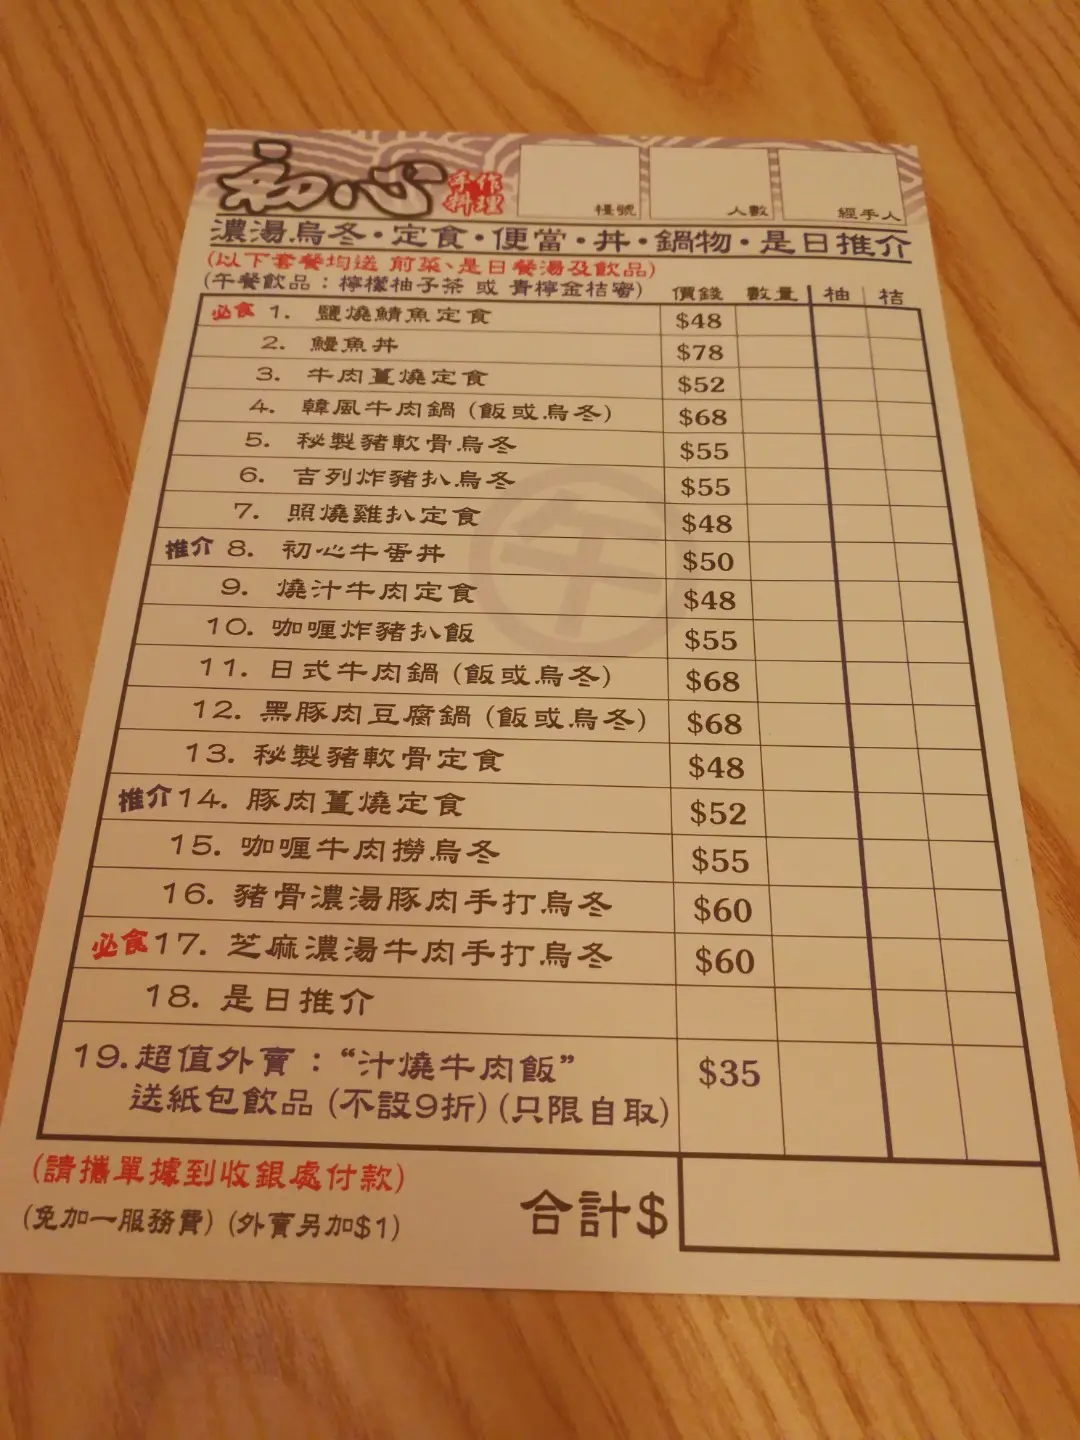 初心 手作料理
檯號 人數 經手人
濃湯烏冬・定食・便當・丼・鍋物・是日推介
(以下套餐均送 前菜、是日餐湯及飲品)
(午餐飲品：檸檬柚子茶 或 青檸金桔蜜) 價錢 數量 柚 桔
必食 1. 鹽燒鯖魚定食 $48
2. 鰻魚丼 $78
3. 牛肉薑燒定食 $52
4. 韓風牛肉鍋 (飯或烏冬) $68
5. 秘製豬軟骨烏冬 $55
6. 吉列炸豬扒烏冬 $55
7. 照燒雞扒定食 $48
推介 8. 初心牛蛋丼 $50
9. 燒汁牛肉定食 $48
10. 咖喱炸豬扒飯 $55
11. 日式牛肉鍋 (飯或烏冬) $68
12. 黑豚肉豆腐鍋 (飯或烏冬) $68
13. 秘製豬軟骨定食 $48
推介 14. 豚肉薑燒定食 $52
15. 咖喱牛肉撈烏冬 $55
16. 豬骨濃湯豚肉手打烏冬 $60
必食 17. 芝麻濃湯牛肉手打烏冬 $60
18. 是日推介
19. 超值外賣：“汁燒牛肉飯” $35
送紙包飲品 (不設9折) (只限自取)
午
(請攜單據到收銀處付款)
(免加一服務費) (外賣另加$1)
合計$